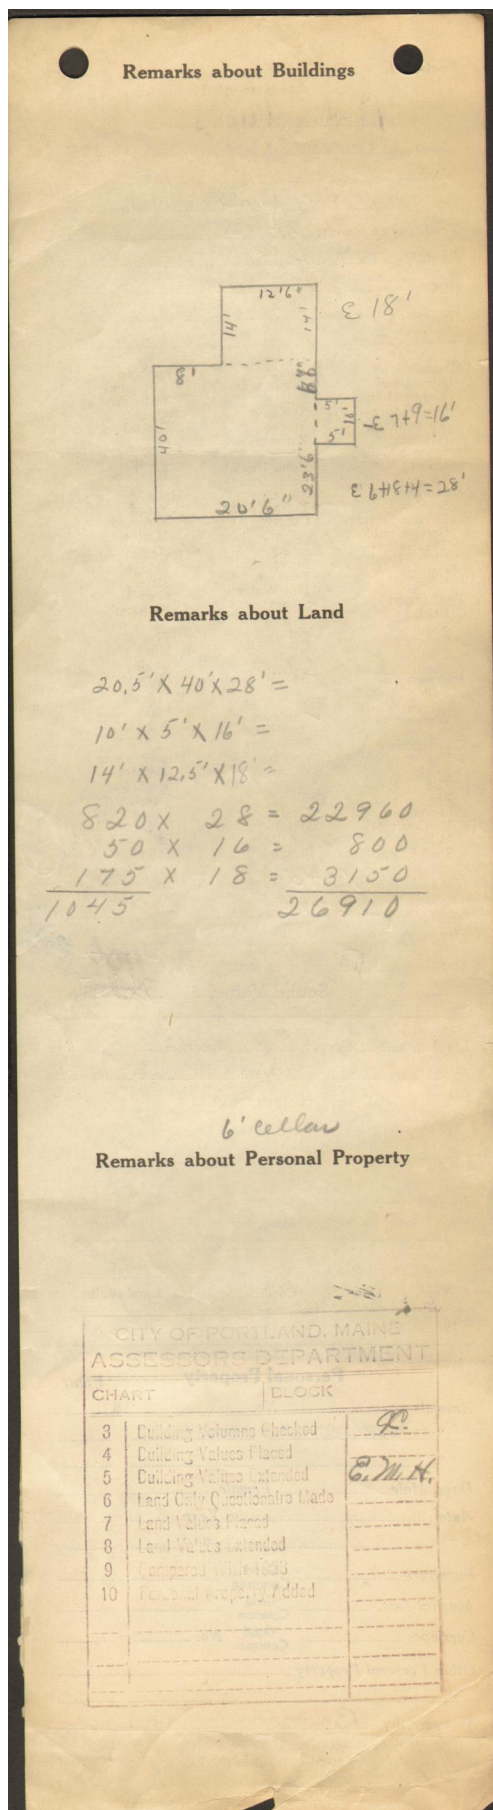 Remarks about Buildings
12'6"
14'
14'
3 18'
8'
5'
10'
3 7+9=16'
5'
40'
23'6"
3 6+18+4=28'
20'6"
Remarks about Land
20.5' X 40' X 28' =
10' X 5' X 16' =
14' X 12.5' X 18' =
820 X 28 = 22960
50 X 16 = 800
175 X 18 = 3150
1045 26910
6' cellar
Remarks about Personal Property
CITY OF PORTLAND, MAINE
ASSESSORS DEPARTMENT
CHART BLOCK
3 Building Volumes Checked
4 Building Values Placed
5 Building Values Extended E.M.H.
6 Land Only Questionaire Made
7 Land Values Placed
8 Land Values Extended
9 Compared With
10 Personal Property Added